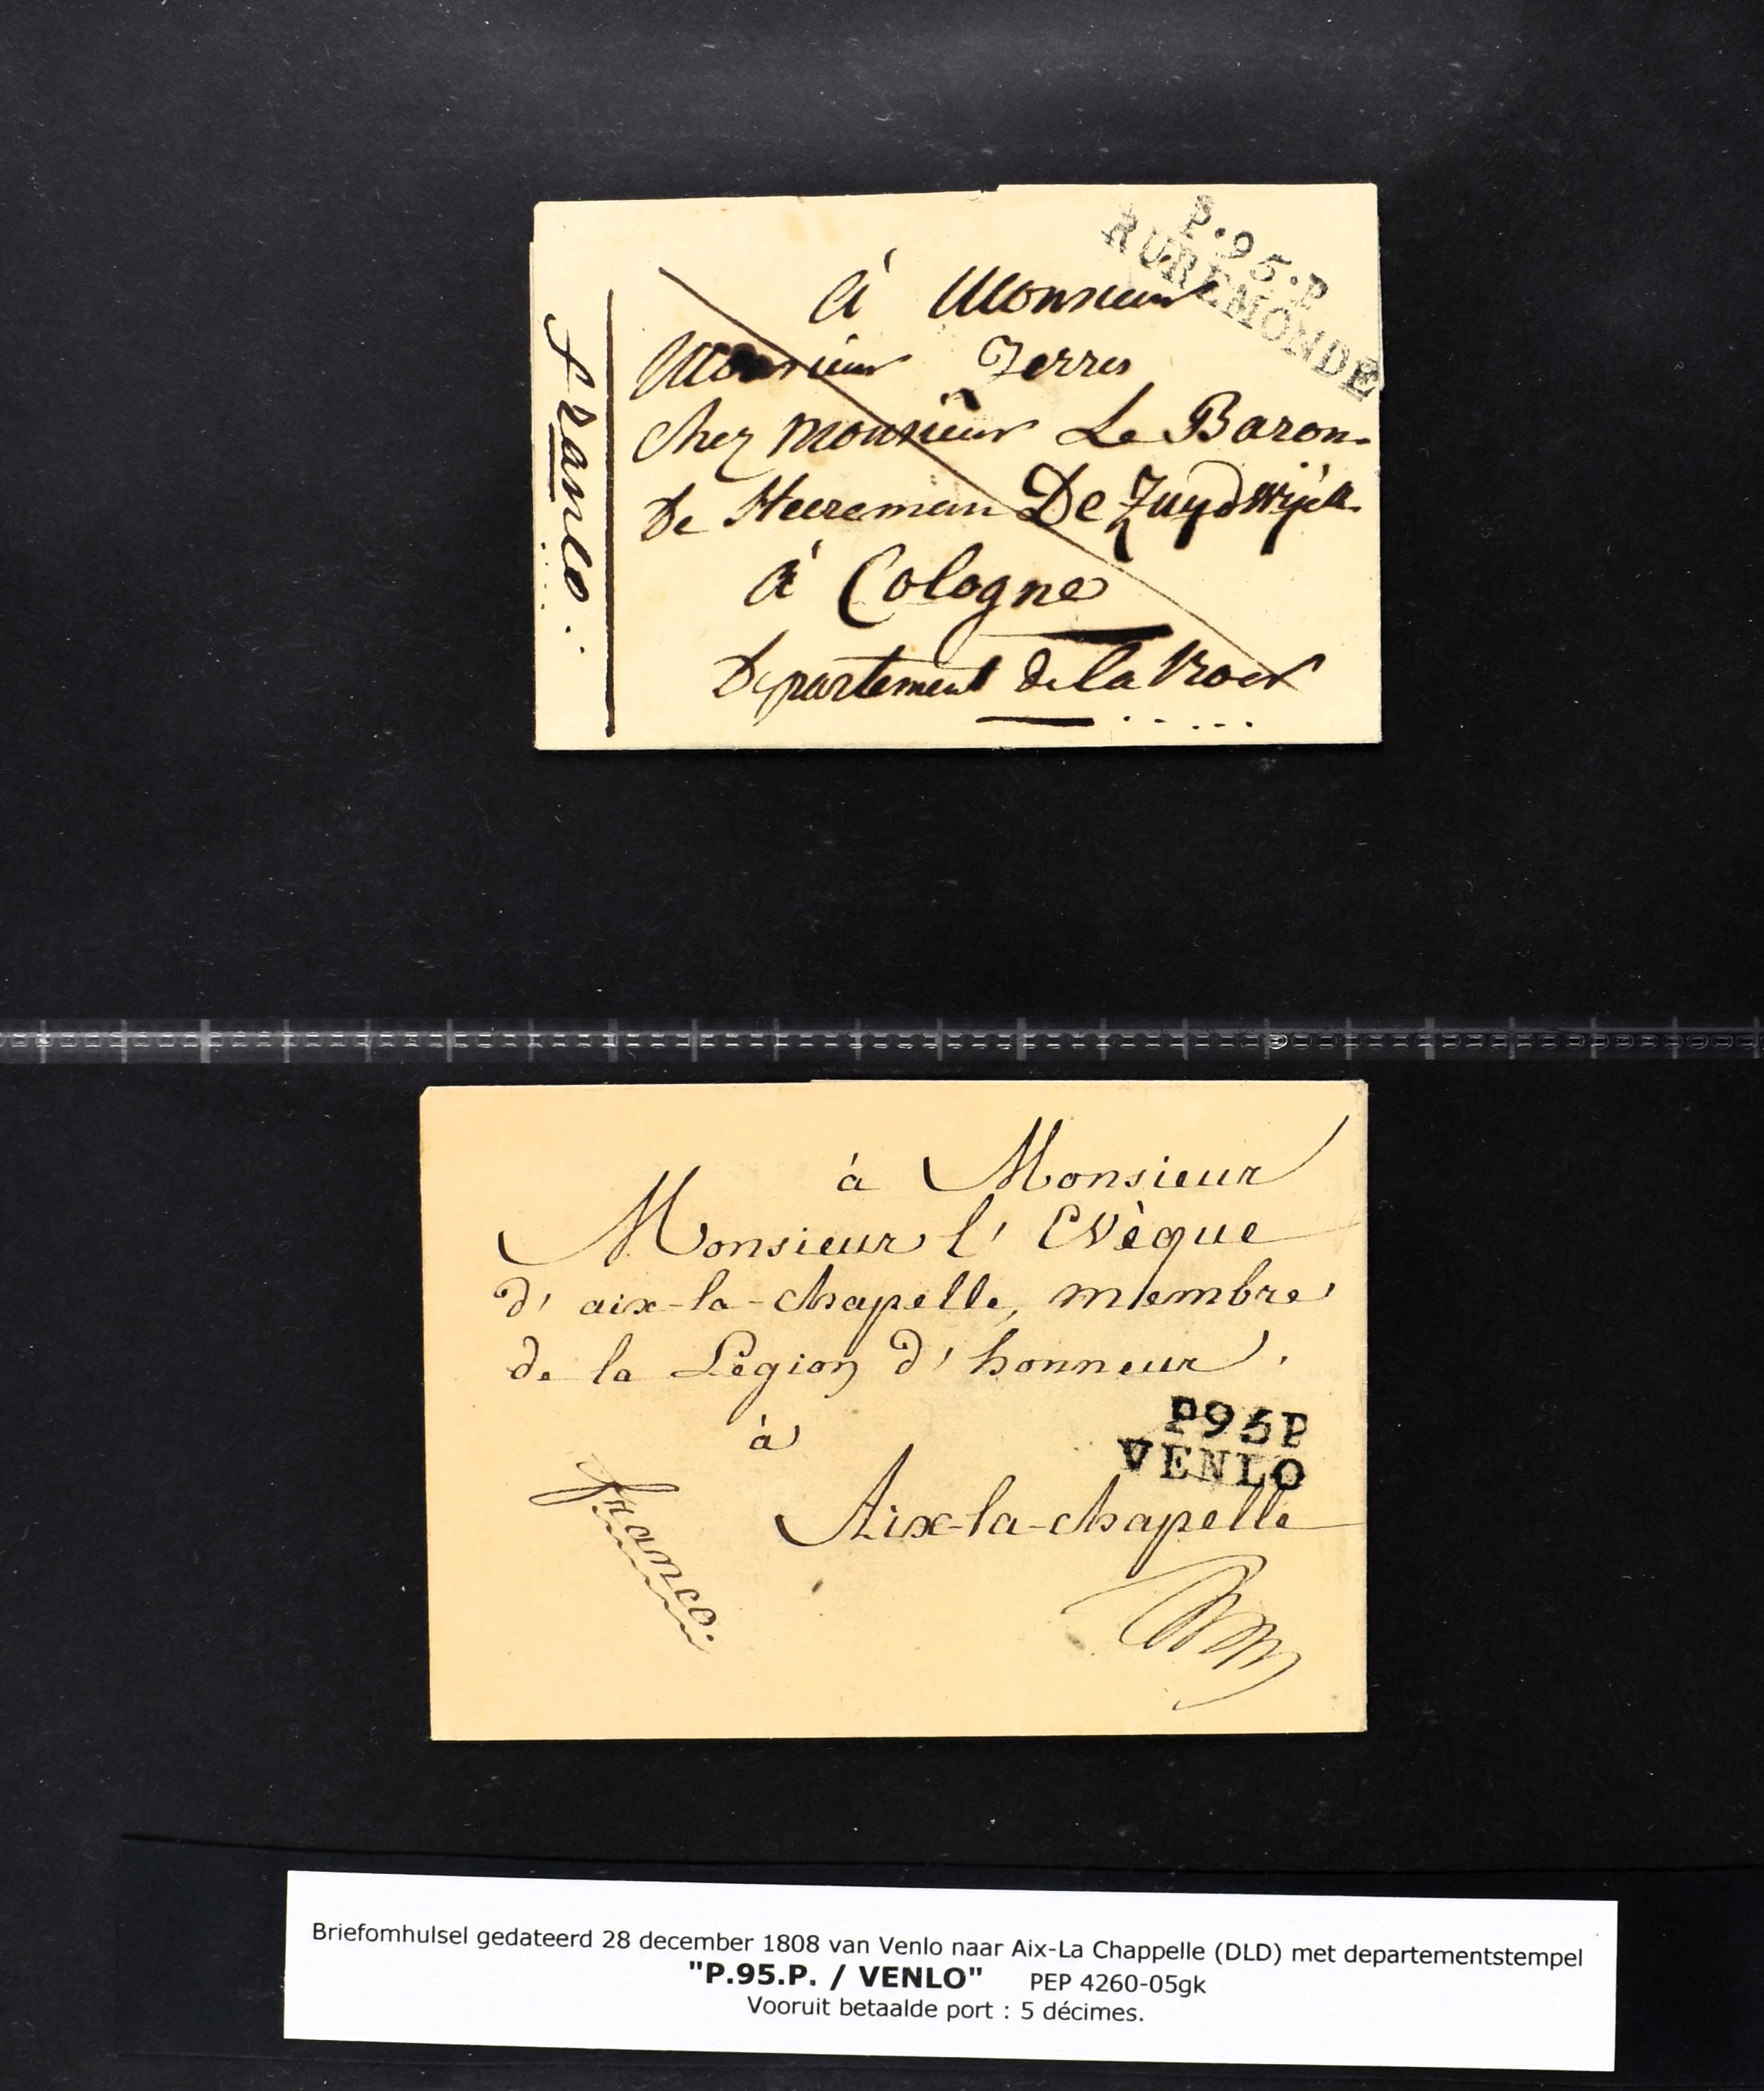 P.95.P
RUREMONDE
à Monsieur
Monsieur Zerres
chez Monsieur Le Baron
De Heereman De Zuydwijck
à Cologne
Departement de la Roer
franco
à Monsieur
Monsieur l' Evèque
d' aix-la-chapelle, membre
de la Légion d' honneur.
à
P95P
VENLO
Aix-la-chapelle
franco
Briefomhulsel gedateerd 28 december 1808 van Venlo naar Aix-La Chappelle (DLD) met departementstempel
"P.95.P. / VENLO" PEP 4260-05gk
Vooruit betaalde port : 5 décimes.